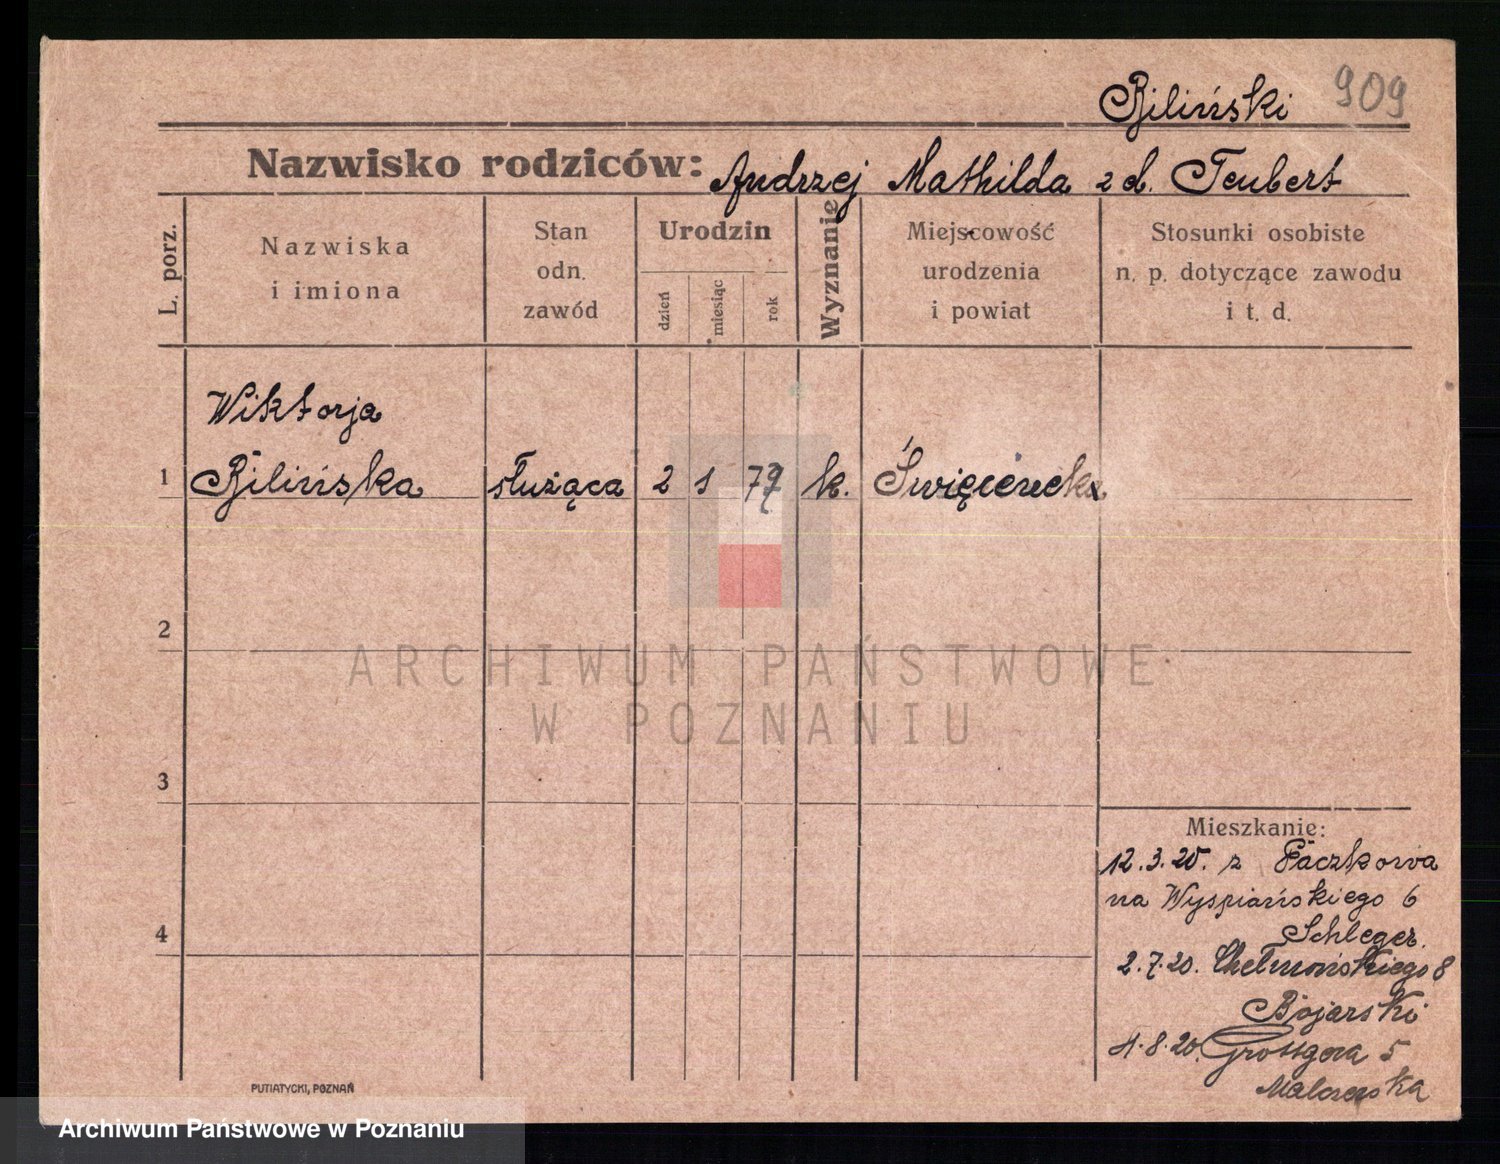 Biliński 909
Nazwisko rodziców: Andrzej Mathilda z d. Teubert
L. porz.
Nazwiska
i imiona
Stan
odn.
zawód
Urodzin
dzień
miesiąc
rok
Wyznanie
Miejscowość
urodzenia
i powiat
Stosunki osobiste
n. p. dotyczące zawodu
i t. d.
Wiktorja
1 Bilińska służąca 2 1 79 k.
2
ARCHIWUM PAŃSTWOWE
W POZNANIU
3
Mieszkanie:
12.3.20. z Paczkowa
na Wyspiańskiego 6
4
Schleger.
2.7.20. Chełmońskiego 8
Bojarski
4.8.20. 5
PUTIATYCKI, POZNAŃ
Archiwum Państwowe w Poznaniu